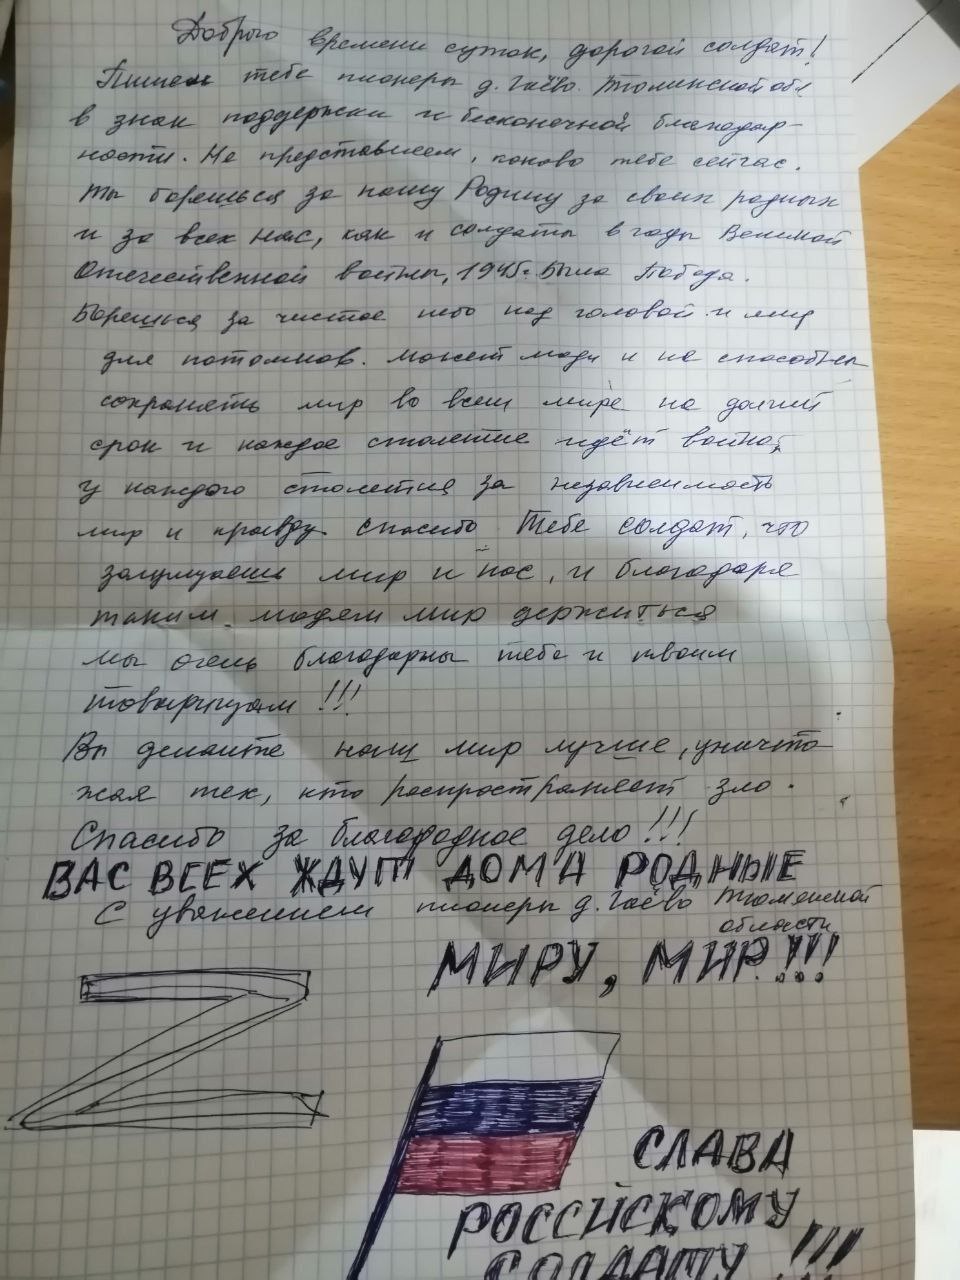 Доброго времени суток, дорогой солдат!
Пишем тебе пионеры д. Гаёво Тюменской обл
в знак поддержки и бесконечной благодар-
ности. Не представляем, каково тебе сейчас.
Ты борешься за нашу Родину за своих родных
и за всех нас, как и солдаты в годы Великой
Отечественной войны, 1945г. была Победа.
Борешься за чистое небо над головой и мир
для потомков. может люди и не способны
сохранять мир во всем мире на долгий
срок и каждое столетие идёт война,
у каждого столетия за независимость
мир и правду спасибо Тебе солдат, что
защищаешь мир и нас, и благодаря
таким людям мир держиться
мы очень благодарны тебе и твоим
товарищам!!!
Вы делаите наш мир лучше, уничто
жая тех, кто распространяет зло.
Спасибо за благородное дело!!!
ВАС ВСЕХ ЖДУТ ДОМА РОДНЫЕ
С уважением пионеры д. Гаёво Тюменской
области
МИРУ, МИР!!!
Z
СЛАВА
РОССИЙСКОМУ
СОЛДАТУ!!!